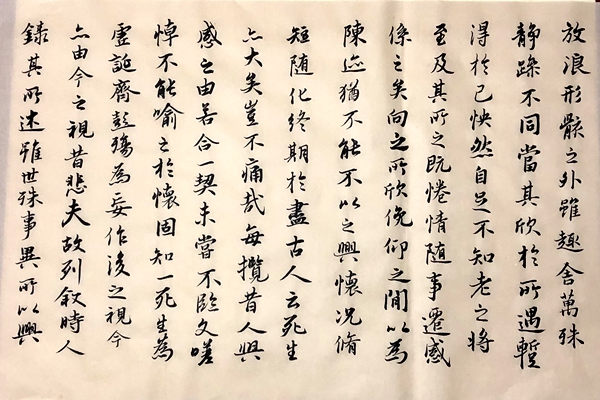 放浪形骸之外雖趣舍萬殊
静躁不同當其欣於所遇蹔
得於己怏然自足不知老之將
至及其所之既惓情随事遷感
係之矣向之所欣俛仰之閒以為
陳迹猶不能不以之興懷況脩
短随化終期於盡古人云死生
亦大矣豈不痛哉每攬昔人興
感之由若合一契未嘗不臨文嗟
悼不能喻之於懷固知一死生為
虛誕齊彭殤為妄作後之視今
亦由今之視昔悲夫故列叙時人
錄其所述雖世殊事異所以興